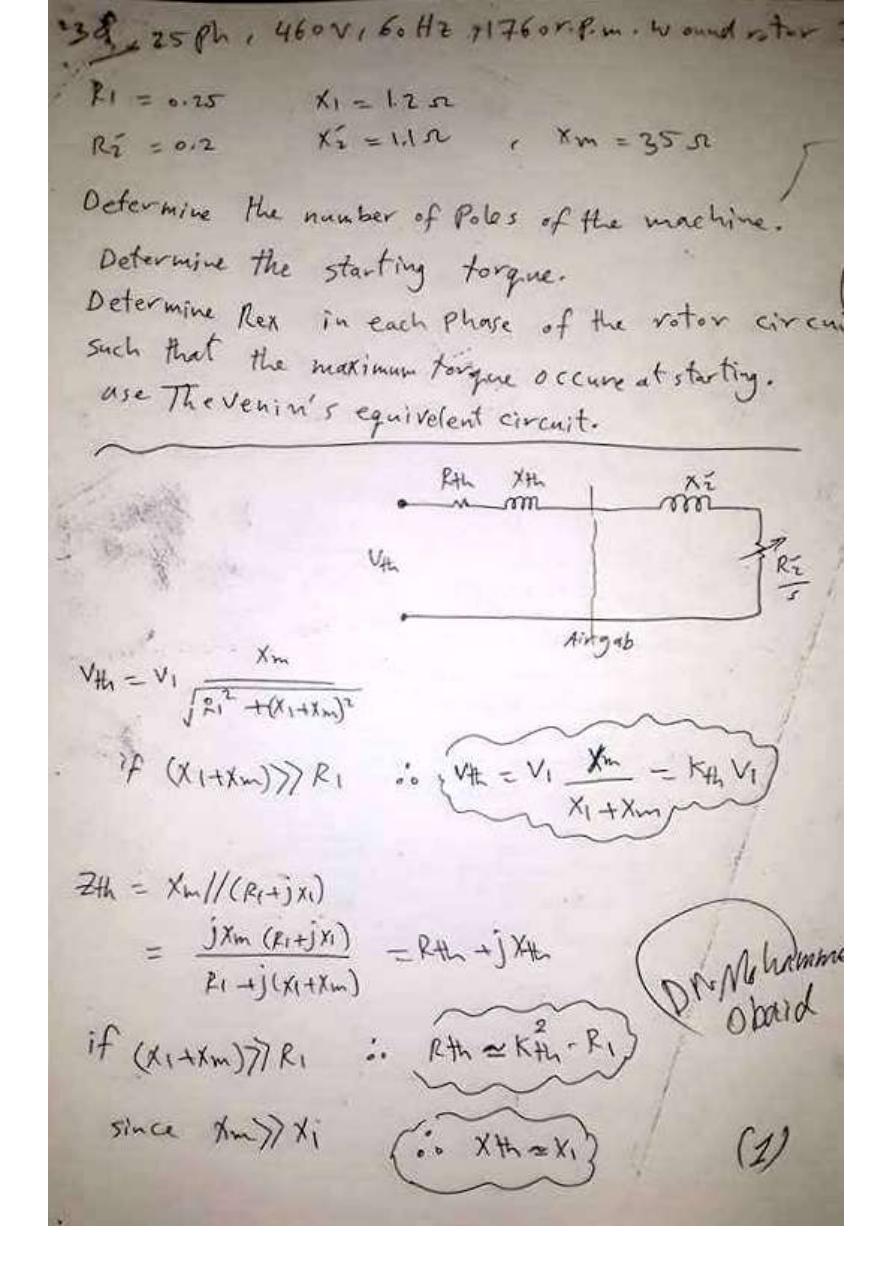 38, 25 Ph, 460V, 60 Hz, 1760 r.p.m. wound rotor
R1 = 0.25 X1 = 1.2 Ω
R2́ = 0.2 X2́ = 1.1 Ω , Xm = 35 Ω
Determine the number of Poles of the machine.
Determine the starting torque.
Determine Rex in each Phase of the rotor circui
such that the maximum torque occure at starting.
use Thevenin's equivelent circuit.
Rth Xth X2́
Vth
R2́/s
Airgab
Vth = V1 Xm / √(R1² + (X1+Xm)²)
if (X1+Xm) >> R1 ∴ Vth = V1 Xm / (X1+Xm) = Kth V1
Zth = Xm//(R1+jX1)
= jXm (R1+jX1) / (R1+j(X1+Xm)) = Rth + jXth
Dr. Mohamme
Obaid
if (X1+Xm) >> R1 ∴ Rth ≃ K²th · R1
since Xm >> X1 ∴ Xth ≃ X1 (1)